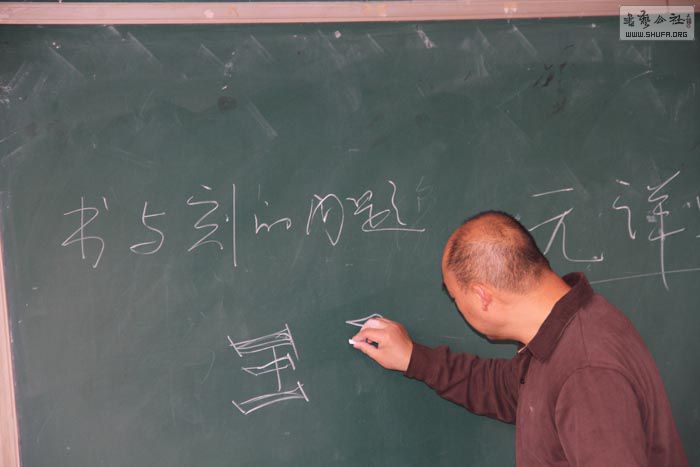 书艺公社
WWW.SHUFA.ORG
书与刻的问题 元详